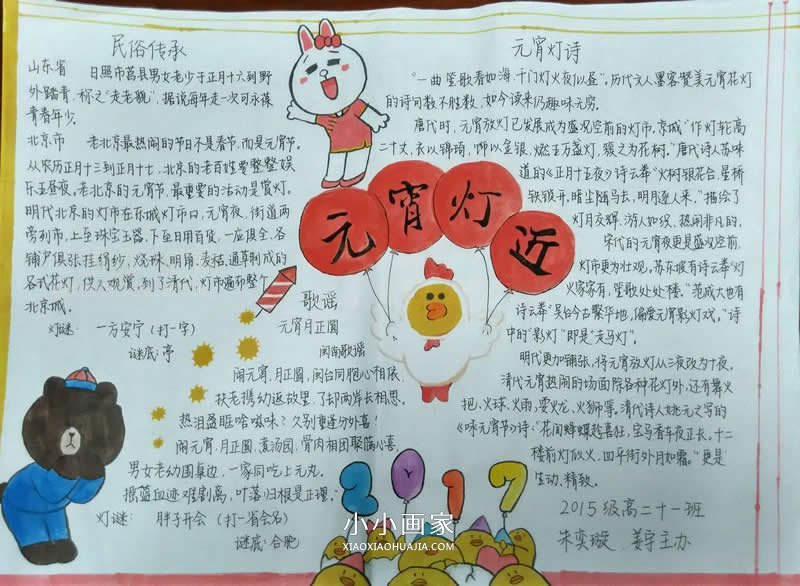 民俗传承
山东省 日照市莒县男女老少于正月十六到野
外踏青,称之"走老貌",据说每年走一次可永葆
青春年少。
北京市 老北京最热闹的节日不是春节,而是元宵节。
从农历正月十三到正月十七,北京的老百姓要整整娱
乐五昼夜。老北京的元宵节,最重要的活动是赏灯。
明代北京的灯市在东城灯市口,元宵夜,街道两
旁列市,上至珠宝玉器,下至日用百货,一应俱全。各
铺户俱张挂绢纱、烧珠、明角、麦秸、通草制成的
各式花灯,供人观赏,到了清代,灯市遍布整个
北京城。
灯谜: 一方安宁(打一字)
谜底:亭
歌谣
元宵月正圆
闽南歌谣
闹元宵,月正圆,闽台同胞心相依,
扶老携幼返故里,了却两岸长相思。
热泪盈眶啥滋味?久别重逢分外喜!
闹元宵,月正圆,煮汤园,骨肉相团聚满心喜,
男女老幼围桌边,一家同吃上元丸。
摇篮血迹难割离,叶落归根是正理。
灯谜: 胖子开会(打一省会名)
谜底:合肥
元宵灯近
元宵灯诗
"一曲笙歌春如海,十门灯火夜似昼",历代文人墨客赞美元宵花灯
的诗句数不胜数,如今读来仍趣味无穷。
唐代时,元宵放灯已发展成为盛况空前的灯市。京城"作灯轮高
二十丈,衣以锦绮,饰以金银,燃五万盏灯,簇之为花树。"唐代诗人苏味
道的《正月十五夜》诗云奉"火树银花合,星桥
铁锁开,暗尘随马去,明月逐人来。"描绘了
灯月交辉,游人如织,热闹非凡的,
宋代的元宵夜更是盛况空前,
灯市更为壮观。苏东坡有诗云奉"灯
火家家有,笙歌处处楼。"范成大也有
诗云奉"吴台今古繁华地,偏爱元宵影灯戏。"诗
中的"影灯"即是"走马灯"。
明代更加铺张,将元宵放灯从三夜改为十夜。
清代元宵热闹的场面除各种花灯外,还有舞火
把、火球、火雨,耍火龙、火狮等,清代诗人姚元之写的
《咏元宵节》诗:"花间蜂蝶趁喜狂,宝马香车夜正长。十二
楼前灯似火,四平街外月如霜。"更是
生动、精致。
2017
2015级高二十一班
朱奕璇、姜宇主办
小小画家
XIAOXIAOHUAJIA.COM